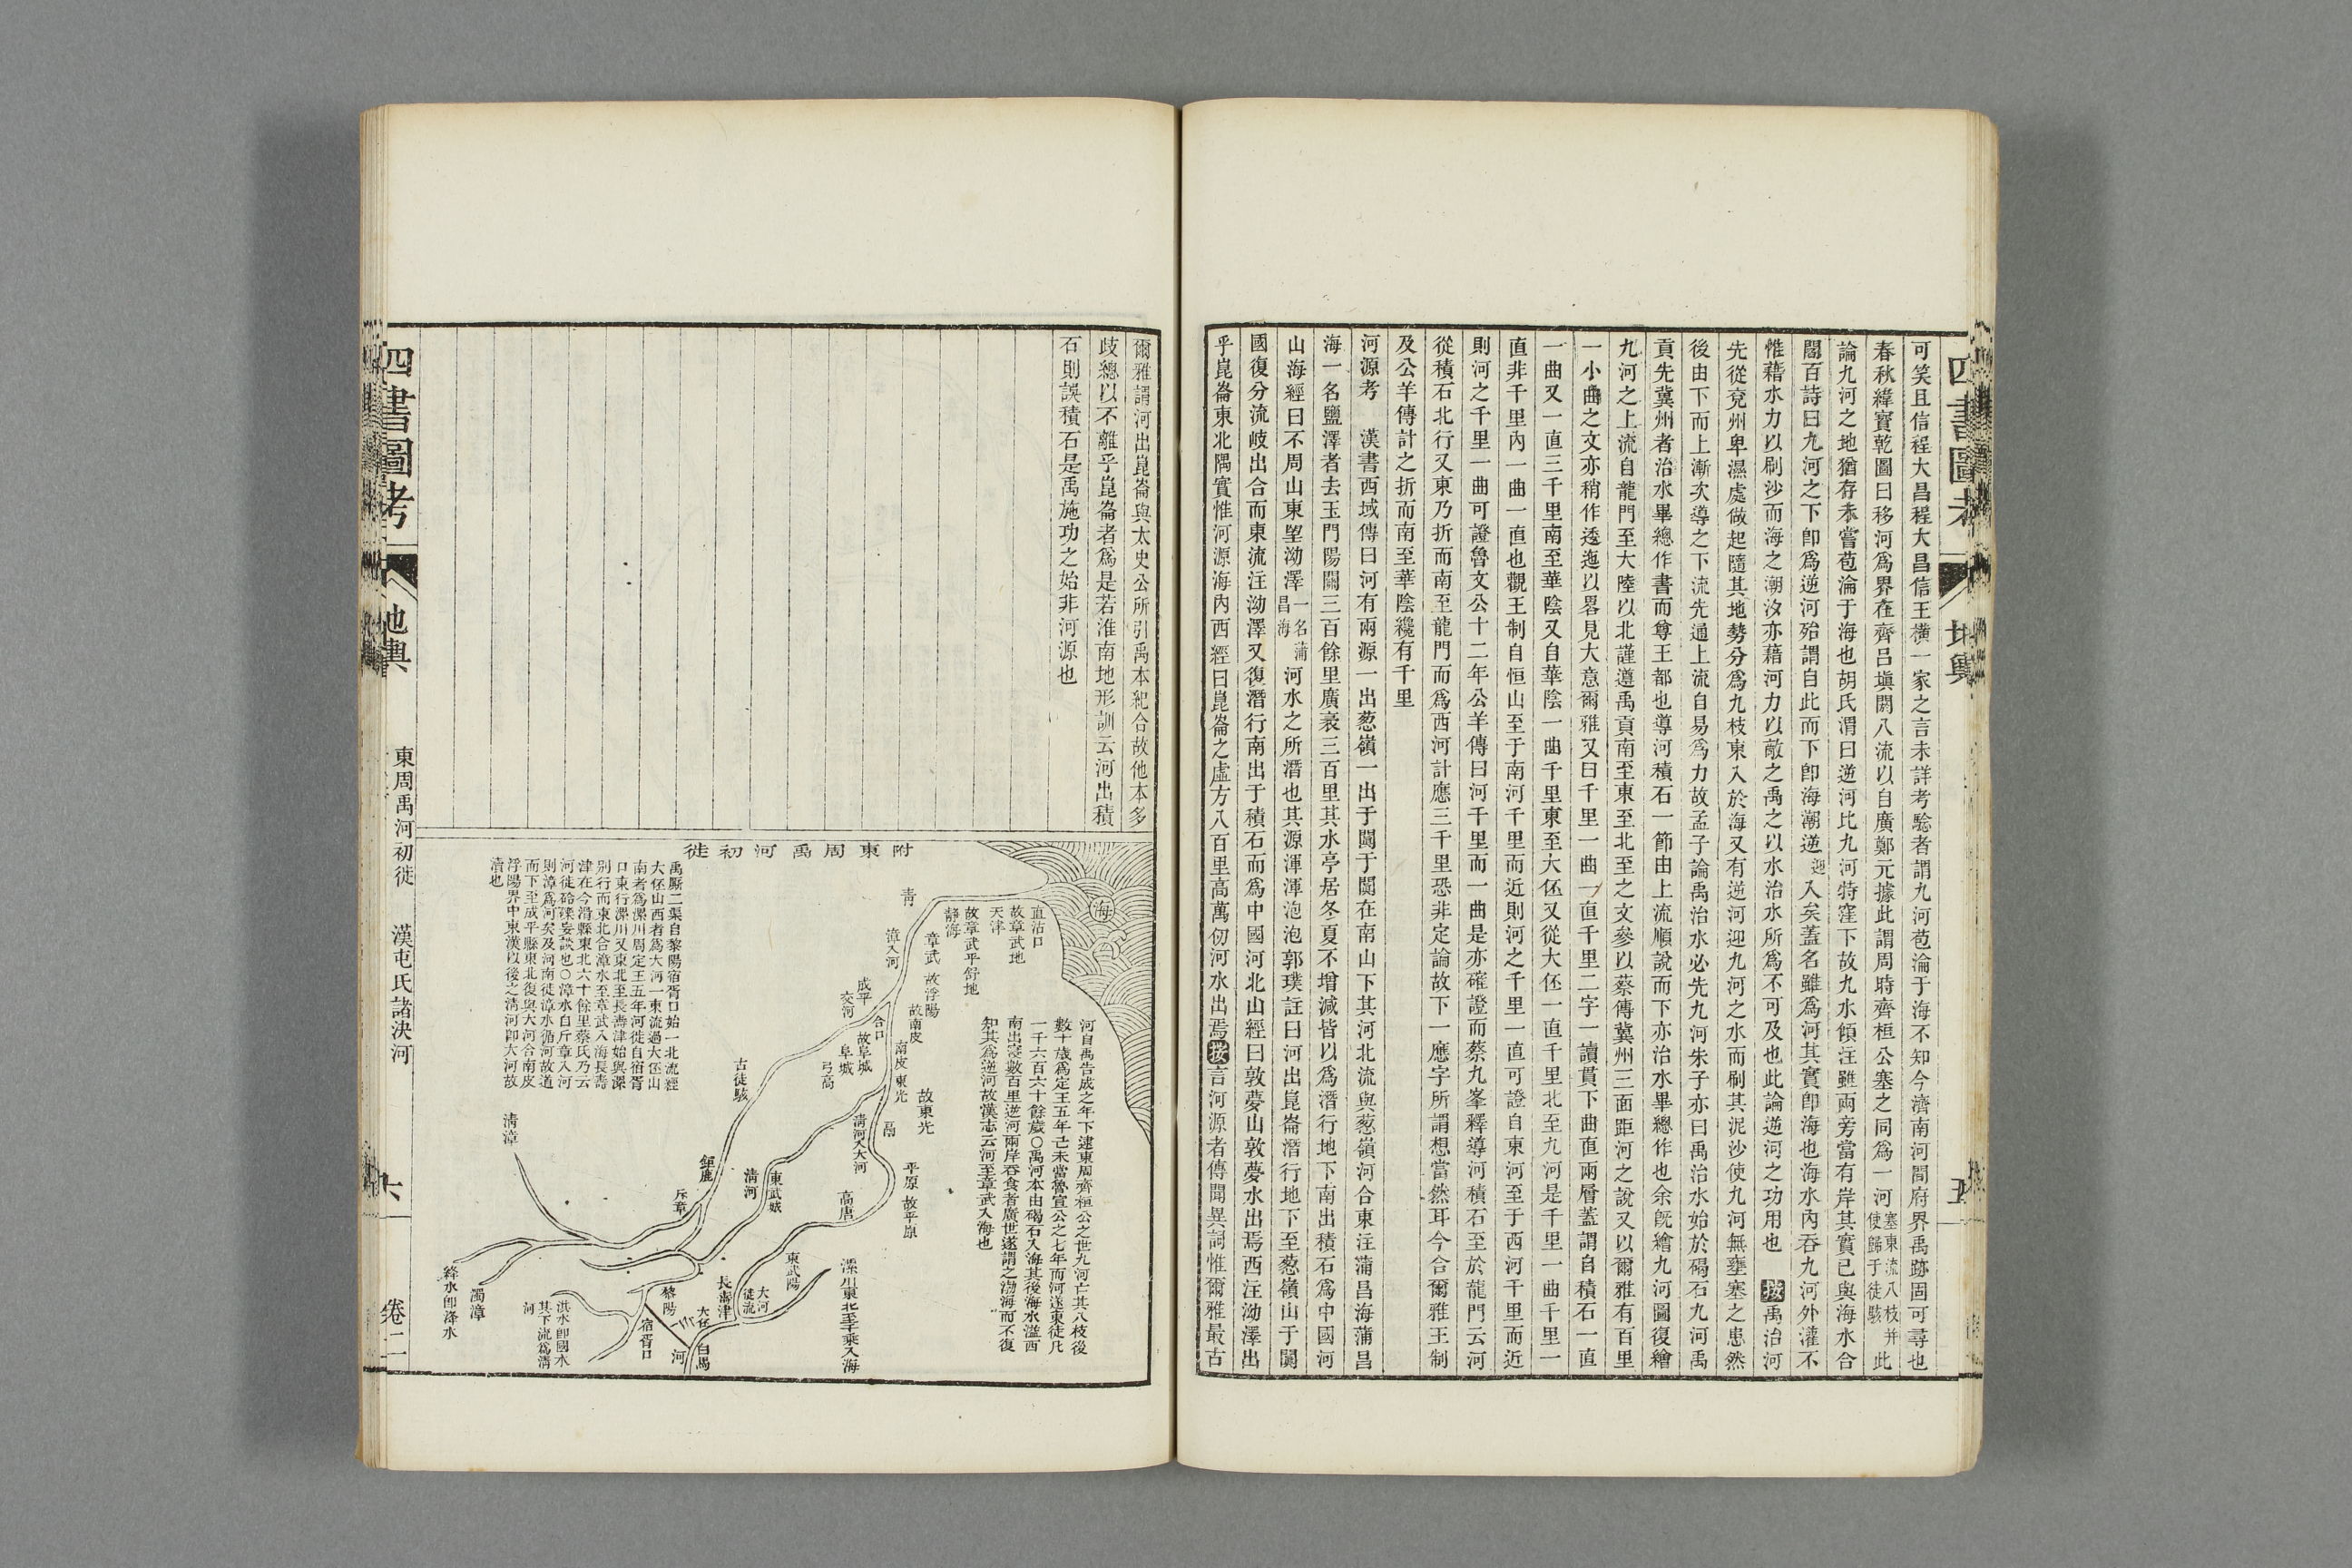 四書圖考
地輿
五
可笑且信程大昌程大昌信王橫一家之言未詳考驗者謂九河苞淪于海不知今濟南河間府界禹跡固可尋也
春秋緯寶乾圖曰移河爲界在齊呂塡閼八流以自廣鄭元據此謂周時齊桓公塞之同爲一河塞東流八枝幷使歸于徒駭此
論九河之地猶存未嘗苞淪于海也胡氏渭曰逆河比九河特窪下故九水傾注雖兩旁當有岸其實已與海水合
閻百詩曰九河之下卽爲逆河殆謂自此而下卽海潮逆迎入矣蓋名雖爲河其實卽海也海水內吞九河外灌不
惟藉水力以刷沙而海之潮汐亦藉河力以敵之禹之以水治水所爲不可及也此論逆河之功用也　按禹治河
先從兗州卑濕處做起隨其地勢分爲九枝東入於海又有逆河迎九河之水而刷其泥沙使九河無壅塞之患然
後由下而上漸次導之下流先通上流自易爲力故孟子論禹治水必先九河朱子亦曰禹治水始於碣石九河禹
貢先冀州者治水畢總作書而尊王都也導河積石一節由上流順說而下亦治水畢總作也余旣繪九河圖復繪
九河之上流自龍門至大陸以北謹遵禹貢南至東至北至之文參以蔡傳冀州三面距河之說又以爾雅有百里
一小曲之文亦稍作逶迤以畧見大意爾雅又曰千里一曲一直千里二字一讀貫下曲直兩層蓋謂自積石一直
一曲又一直三千里南至華陰又自華陰一曲千里東至大伾又從大伾一直千里北至九河是千里一曲千里一
直非千里內一曲一直也觀王制自恒山至于南河千里而近則河之千里一直可證自東河至于西河千里而近
則河之千里一曲可證魯文公十二年公羊傳曰河千里而一曲是亦確證而蔡九峯釋導河積石至於龍門云河
從積石北行又東乃折而南至龍門而爲西河計應三千里恐非定論故下一應字所謂想當然耳今合爾雅王制
及公羊傳計之折而南至華陰纔有千里
河源考　漢書西域傳曰河有兩源一出葱嶺一出于闐于闐在南山下其河北流與葱嶺河合東注蒲昌海蒲昌
海一名鹽澤者去玉門陽關三百餘里廣袤三百里其水亭居冬夏不增減皆以爲潛行地下南出積石爲中國河
山海經曰不周山東望泑澤一名蒲昌海河水之所潛也其源渾渾泡泡郭璞註曰河出崑崙潛行地下至葱嶺山于闐
國復分流岐出合而東流注泑澤又復潛行南出于積石而爲中國河北山經曰敦薨山敦薨水出焉西注泑澤出
乎崑崙東北隅實惟河源海內西經曰崑崙之虛方八百里高萬仞河水出焉按言河源者傳聞異詞惟爾雅最古
爾雅謂河出崑崙與太史公所引禹本紀合故他本多
歧總以不離乎崑崙者爲是若淮南地形訓云河出積
石則誤積石是禹施功之始非河源也
附東周禹河初徙
海
直沽口
故章武地
天津
故章武平舒地
靜海
青
章武
故浮陽
漳入河
成平
交河
故南皮
合口
南皮
東光
故阜城
阜城
弓高
故東光
古徒駭
鬲
清河入大河
平原
故平原
高唐
東武城
清河
鉅鹿
斥章
清漳
濁漳
絳水卽洚水
淇水卽國水
其下流爲清
河
黎陽
宿胥口
長壽津
大河
徒流
大伾
白馬
河
東武陽
漯川東北至千乘入海
河自禹告成之年下逮東周齊桓公之世九河亡其八枝後
數十歲爲定王五年己未當魯宣公之七年而河遂東徙凡
一千六百六十餘歲〇禹河本由碣石入海其後海水溢西
南出寖數百里逆河兩岸吞食者廣世遂謂之渤海而不復
知其爲逆河故漢志云河至章武入海也
禹厮二渠自黎陽宿胥口始一北流經
大伾山西者爲大河一東流過大伾山
南者爲漯川周定王五年河徙自宿胥
口東行漯川又東北至長壽津始與漯
別行而東北合漳水至章武入海長壽
津在今滑縣東北六十餘里蔡氏乃云
河徙砱礫妄談也〇漳水自斥章入河
則漳爲河矣及河南徙漳水循河故道
而下至成平縣東北復與大河合南皮
浮陽界中東漢以後之清河卽大河故
瀆也
四書圖考
地輿
東周禹河初徙　漢屯氏諸決河
六
卷二